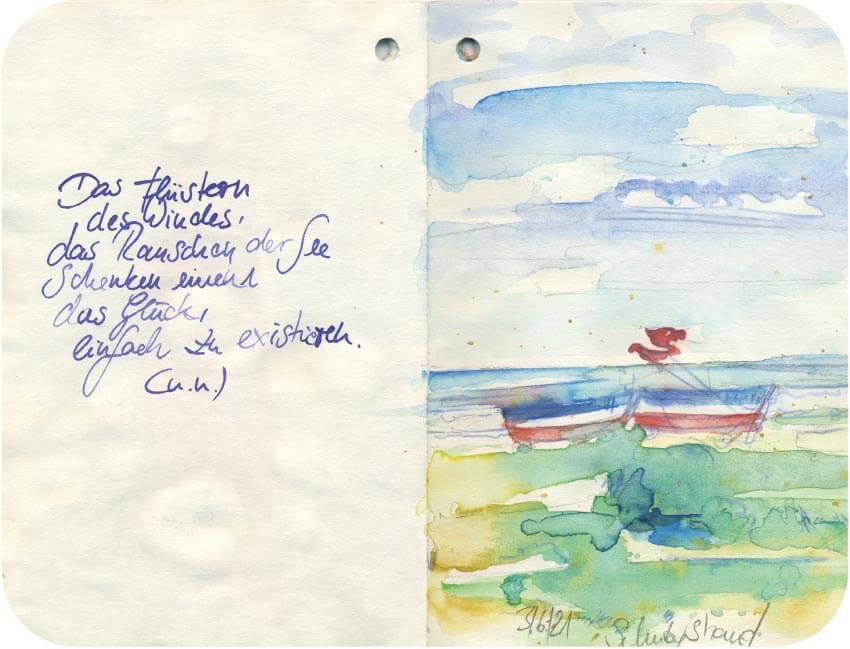 Das Flüstern
des Windes,
das Rauschen der See
Schenken einem
das Glück,
einfach zu existieren.
(n.n.)
3/6/21